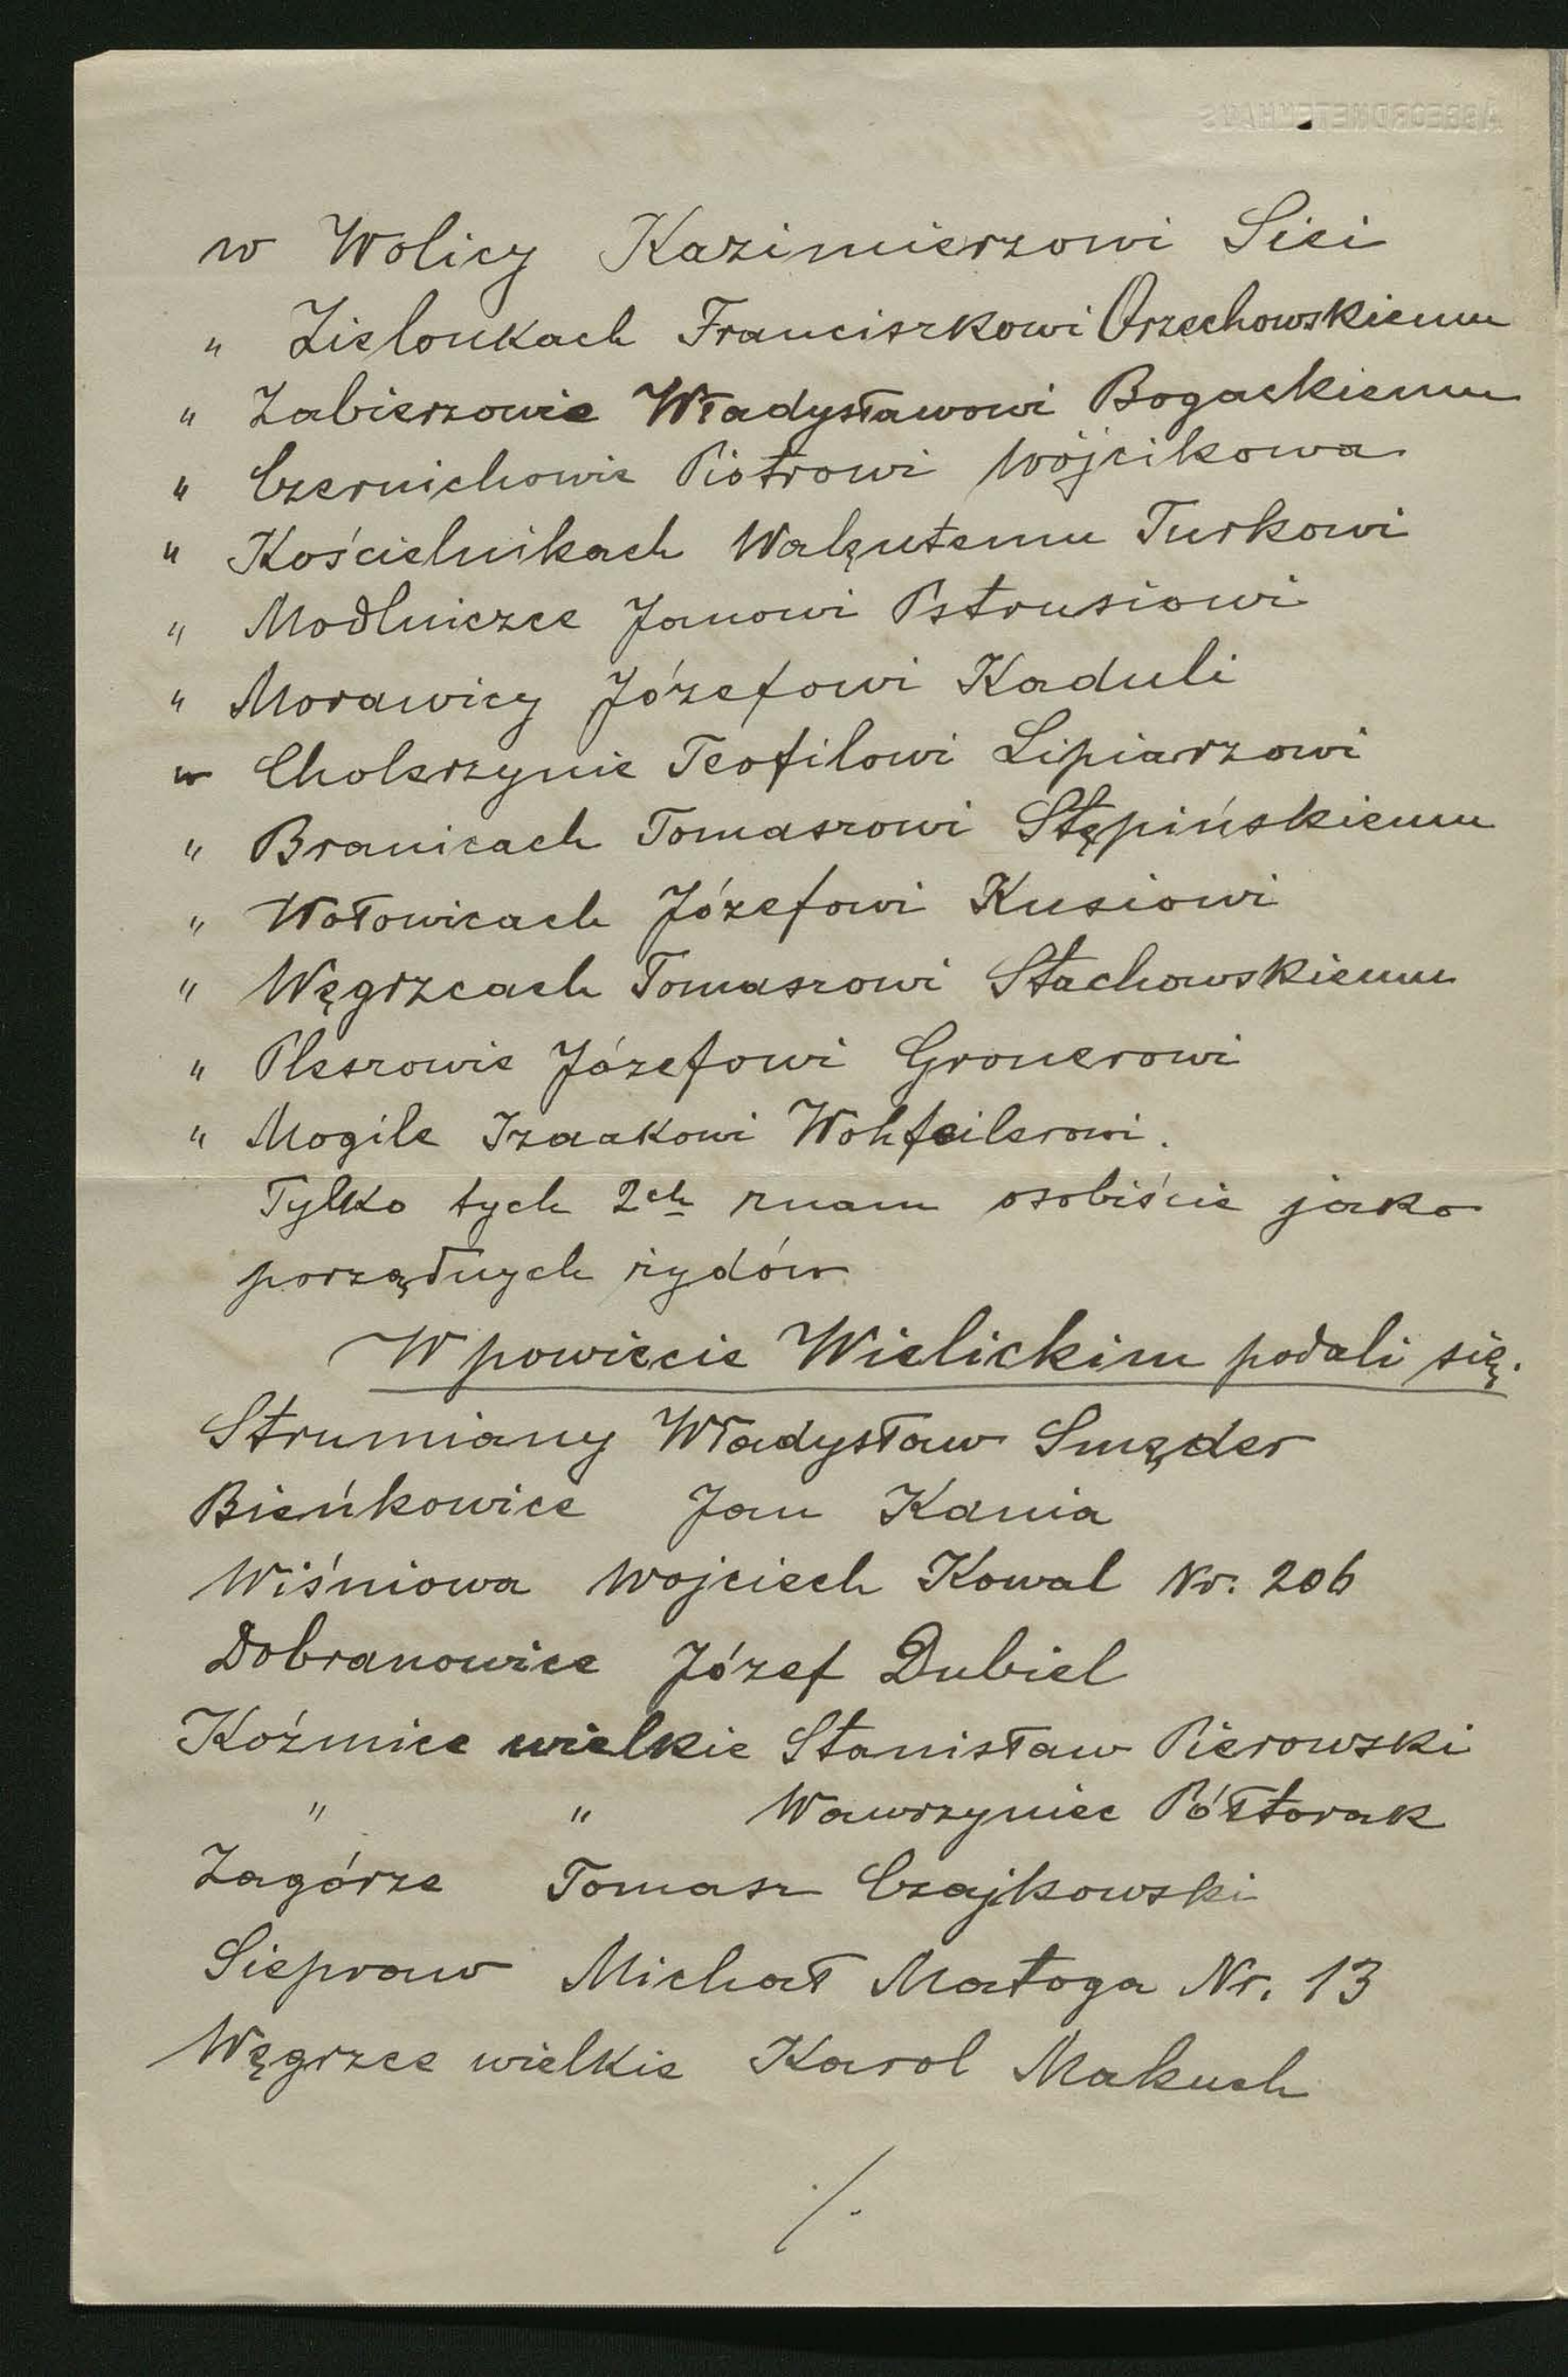 w Wolicy Kazimierzowi Sici
" Zielonkach Franciszkowi Orzechowskiemu
" Zabierzowie Władysławowi Bogackiemu
" Czernichowie Piotrowi Wójcikowa
" Kościelnikach Walętemu Turkowi
" Modlniczce Janowi Pstrusiowi
" Morawicy Józefowi Kaduli
w Cholerzynie Teofilowi Lipiarzowi
" Branicach Tomaszowi Stępińskiemu
" Wołowicach Józefowi Kusiowi
" Węgrzcach Tomaszowi Stachowskiemu
" Pleszowie Józefowi Gronerowi
" Mogile Izaakowi Wohfeilerowi.
Tylko tych 2ch znam osobiście jako
porządnych żydów
W powiecie Wielickim podali się.
Strumiany Władysław Smęder
Bieńkowice Jan Kania
Wiśniowa Wojciech Kowal Nr. 206
Dobranowice Józef Dubiel
Koźmice wielkie Stanisław Pierowski
" " Wawrzyniec Półtorak
Zagórze Tomasz Czajkowski
Siepraw Michał Matoga Nr. 13
Węgrzce wielkie Karol Makuch
./.